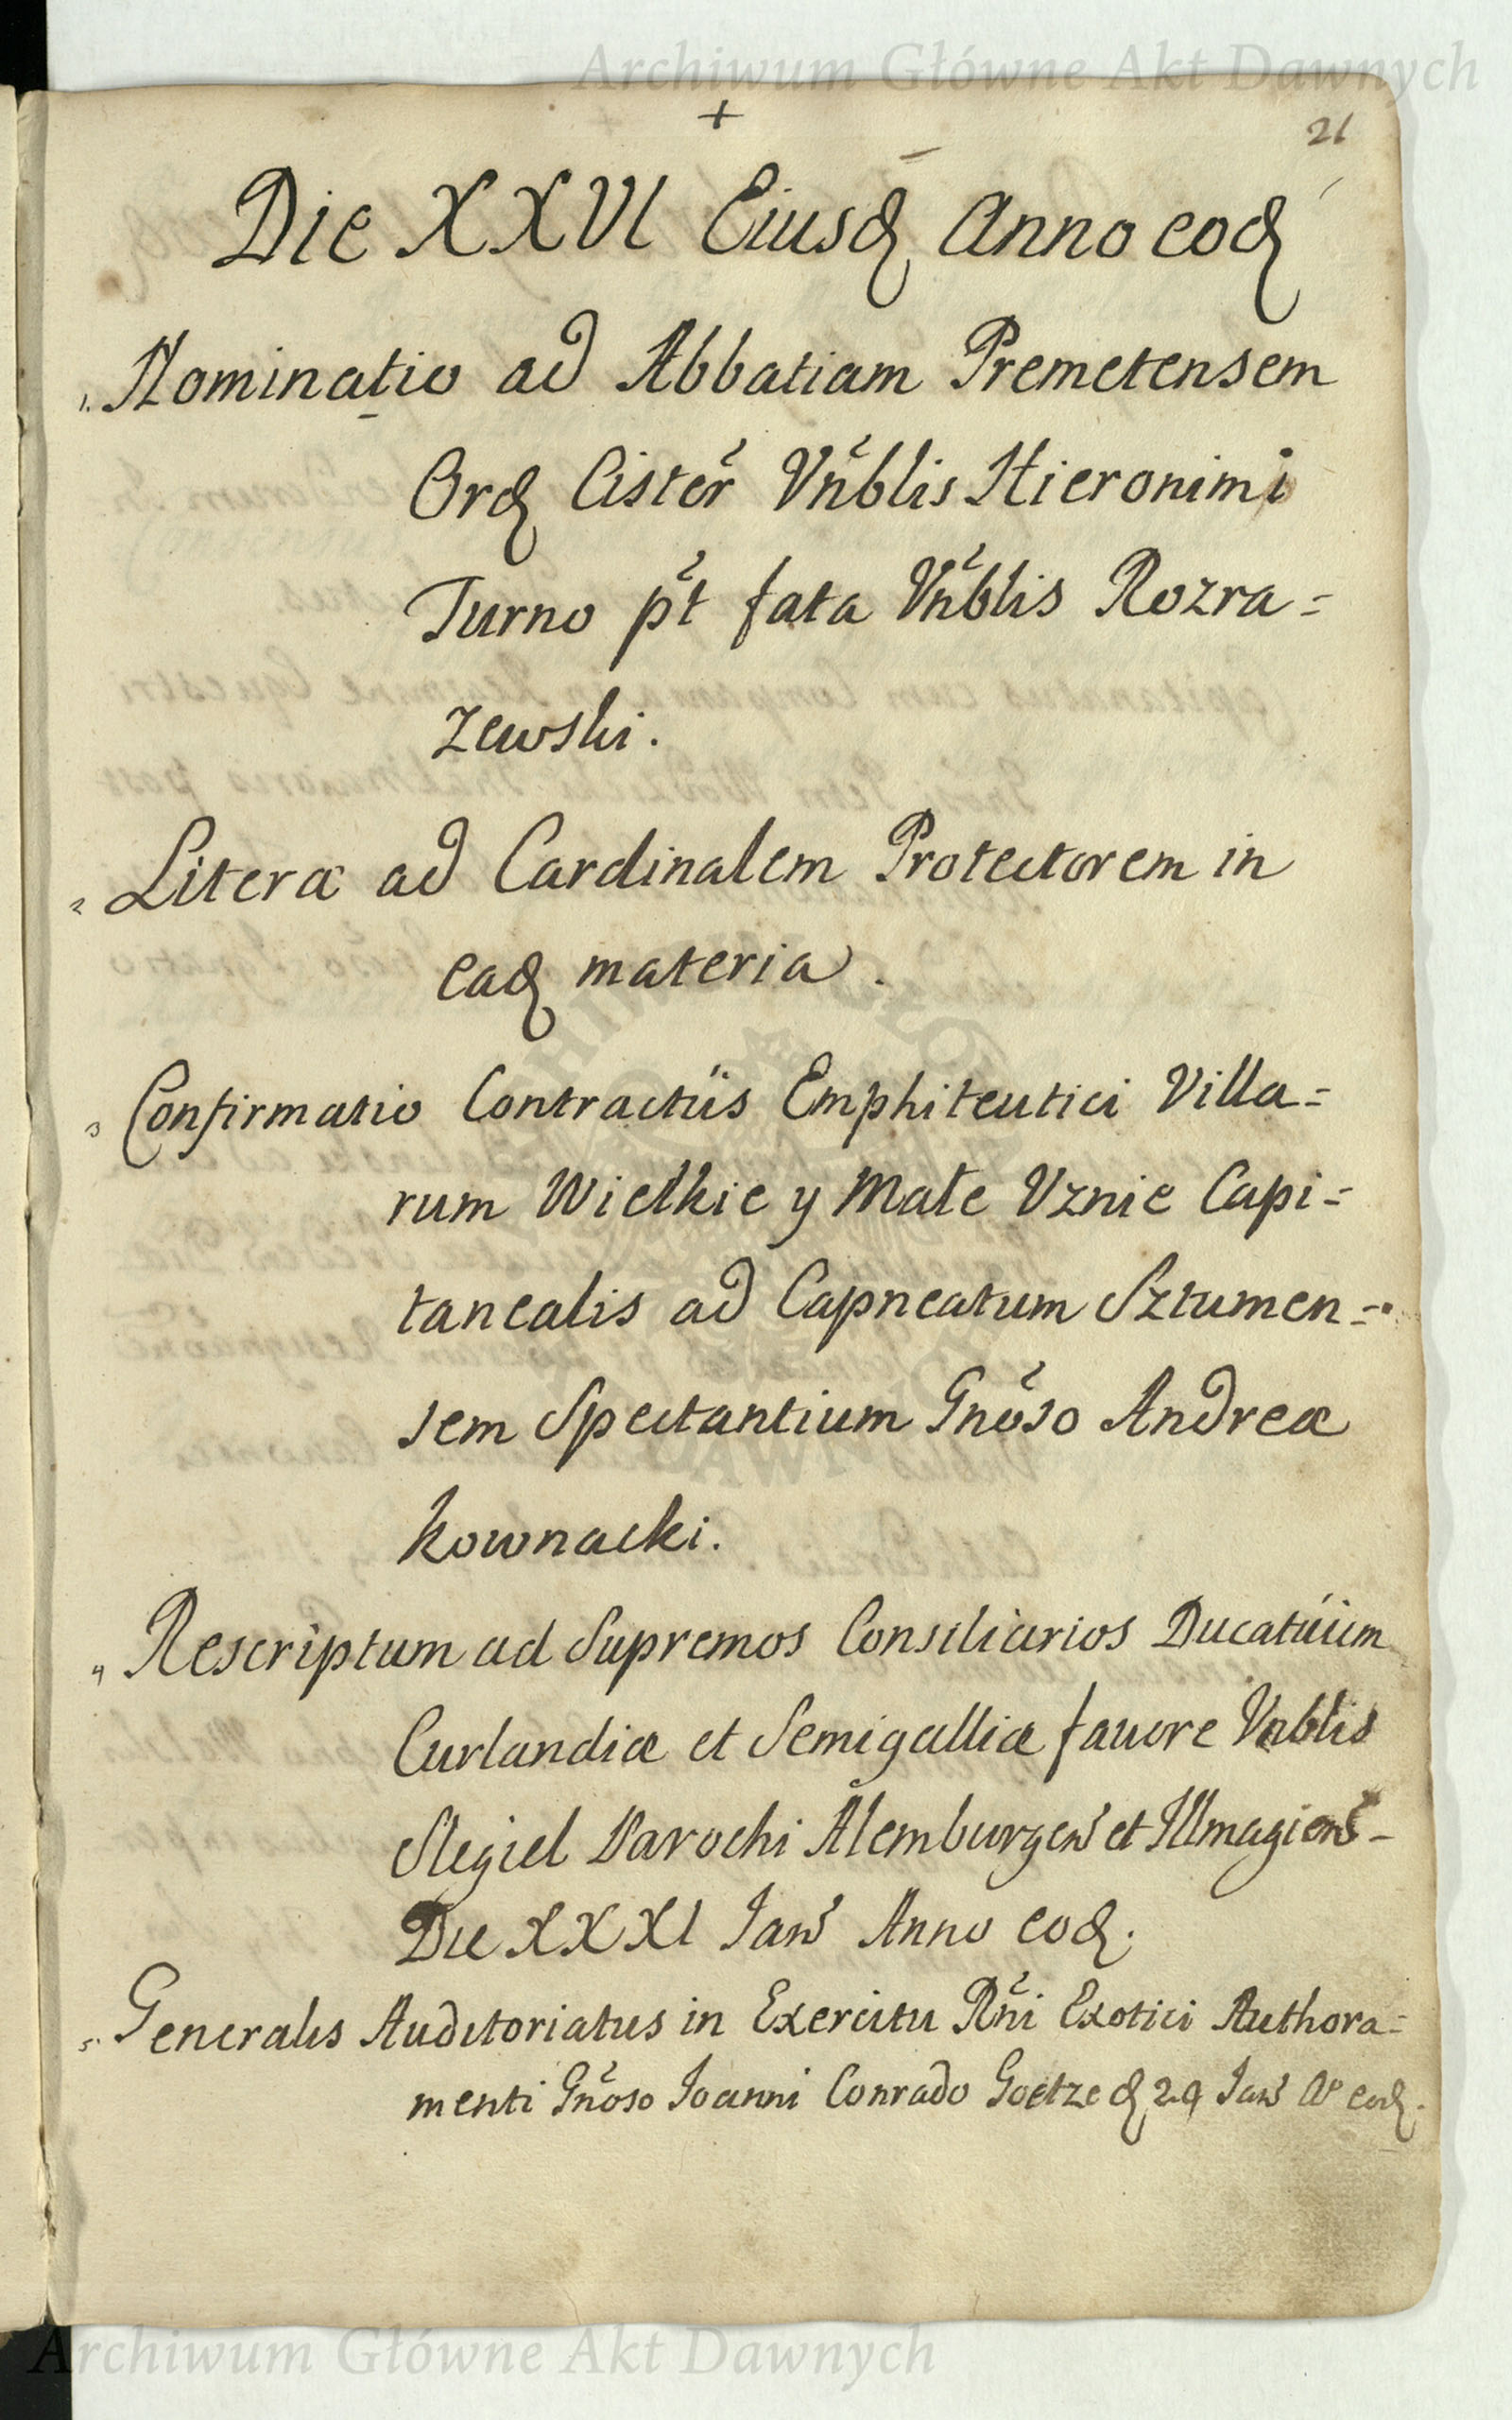 Archiwum Główne Akt Dawnych
+
21
Die XXVI Eiusd Anno eod
1. Nominatio ad Abbatiam Premetensem
Ord Cister Vnblis Hieronimi
Turno pt fata Vnblis Rozra=
zewski.
2 Literæ ad Cardinalem Protectorem in
ead materia.
3 Confirmatio Contractûs Emphiteutici Villa=
rum Wielkie y Małe Vznie Capi=
tanealis ad Capneatum Sztumen=
sem Spectantium Gnoso Andreæ
Kownacki.
4 Rescriptum ad Supremos Consiliarios Ducatuum
Curlandiæ et Semigalliæ favore Vnblis
Slegiel Parochi Alemburgen et Illmagien-
Die XXXI Jan Anno eod.
5. Generalis Auditoriatus in Exercitu Rni Exotici Authora=
menti Gnoso Joanni Conrado Goetze d 29 Jan Ao eod.
Archiwum Główne Akt Dawnych